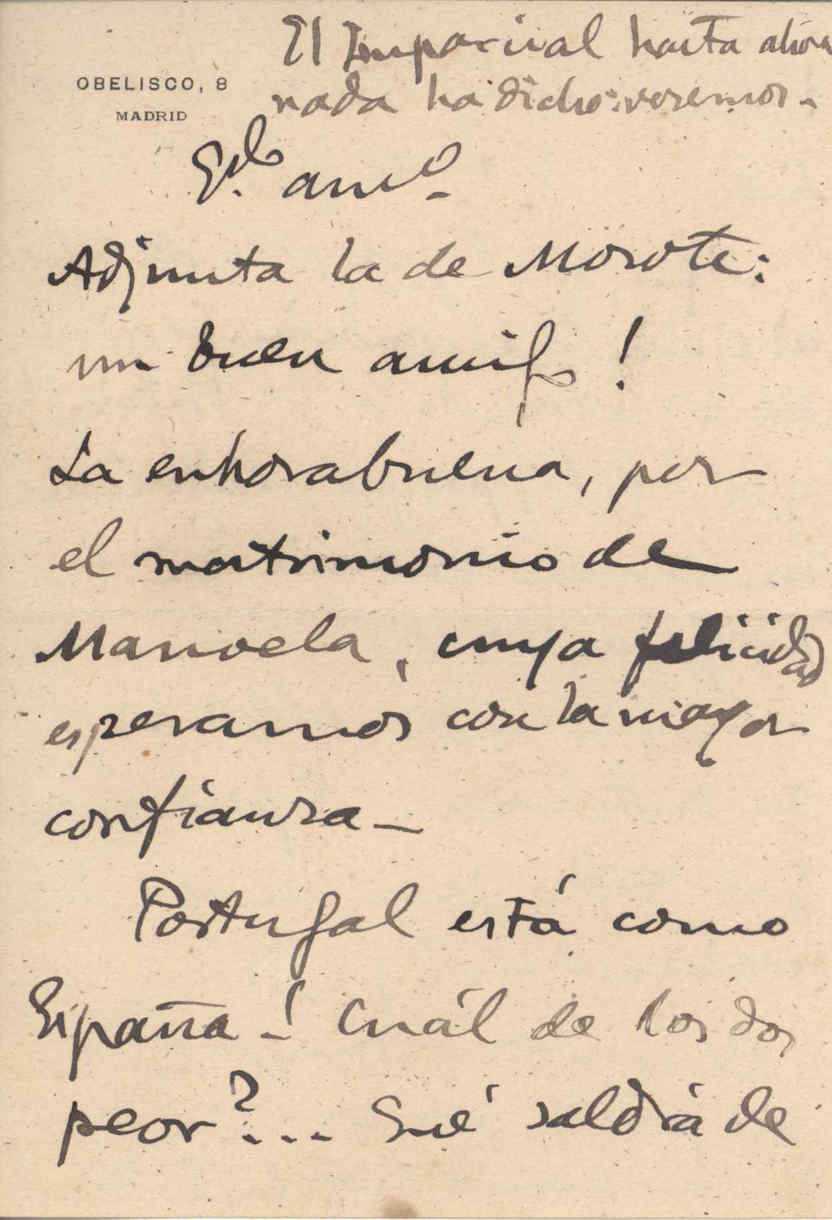 El Imparcial hasta ahora
nada ha dicho: veremos.-
OBELISCO, 8
MADRID
Qdo. amo.
Adjunta la de Morote:
un buen amigo!
La enhorabuena, por
el matrimonio de
Manuela, cuya felicidad
esperamos con la mayor
confianza_
Portugal está como
España-¿Cuál de los dos
peor?... Qué saldrá de